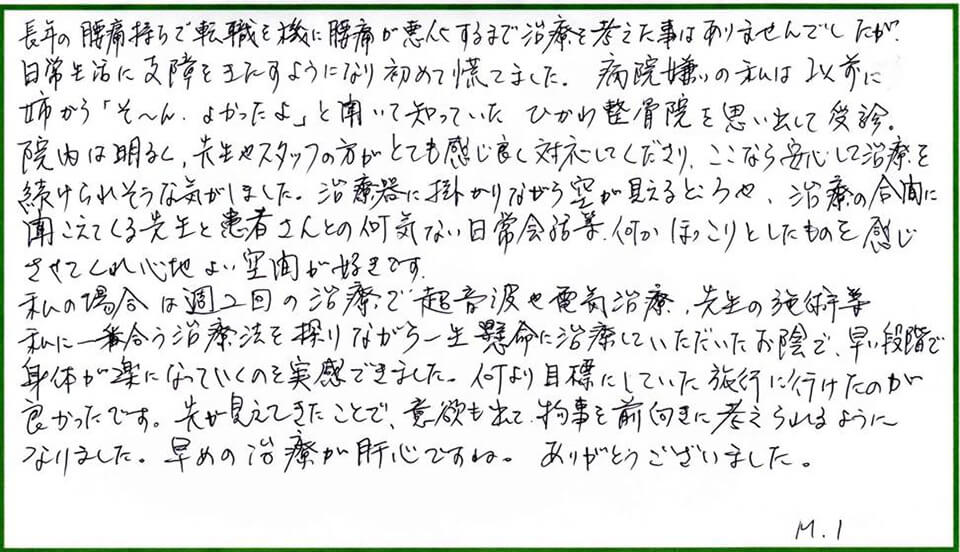 長年の腰痛持ちで転職を機に腰痛が悪化するまで治療を考えた事はありませんでしたが、
日常生活に支障をきたすようになり初めて慌てました。 病院嫌いの私は以前に
姉から「そ〜ん、よかったよ」と聞いて知っていた ひかわ整骨院を思い出して受診。
院内は明るく、先生やスタッフの方がとても感じ良く対応してくださり、ここなら安心して治療を
続けられそうな気がしました。治療器に掛かりながら空が見えるところや、治療の合間に
聞こえてくる先生と患者さんとの何気ない日常会話等、何かほっこりとしたものを感じ
させてくれ心地よい空間が好きです。
私の場合は週2回の治療で超音波や電気治療、先生の施術等
私に一番合う治療法を探りながら一生懸命に治療していただいたお陰で、早い段階で
身体が楽になっていくのを実感できました。何より目標にしていた旅行に行けたのが
良かったです。先が見えてきたことで、意欲も出て、物事を前向きに考えられるように
なりました。早めの治療が肝心ですね。 ありがとうございました。
M.I